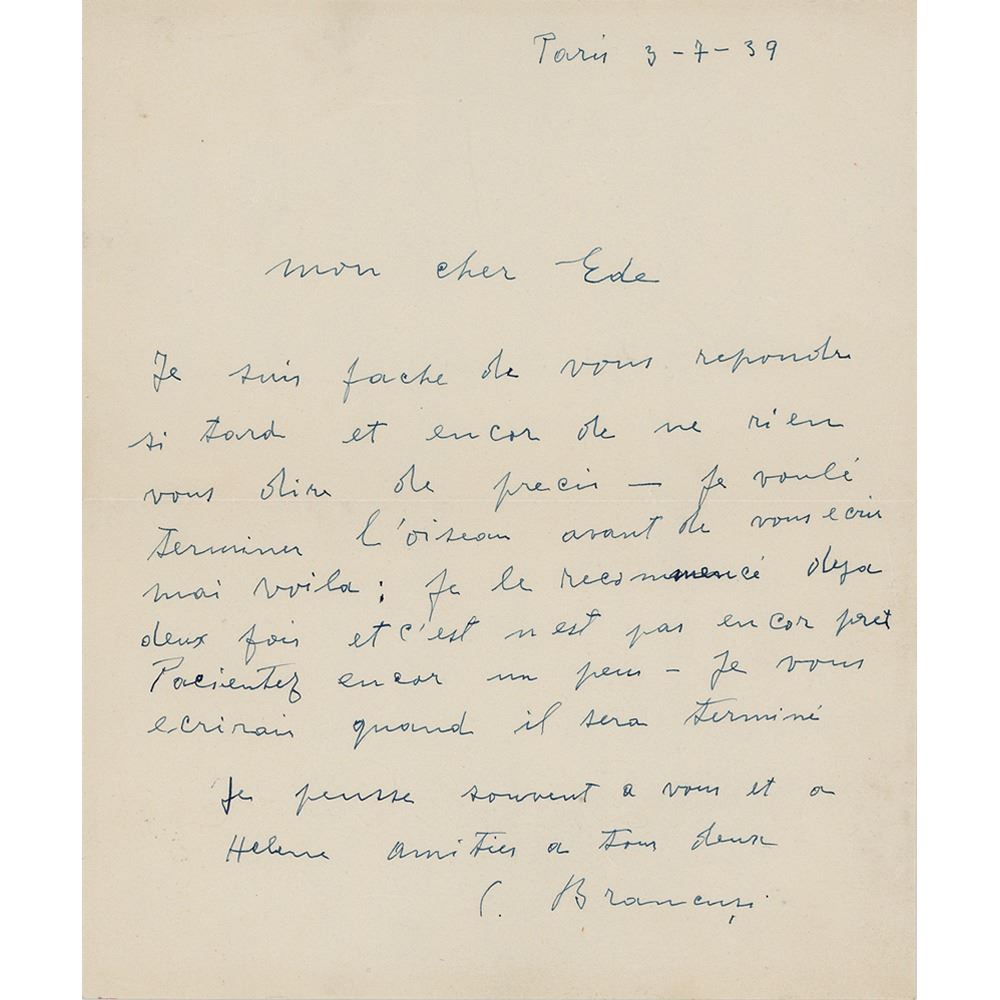 Paris 3-7-39
mon cher Ede
Je suis fache de vous repondre
si tard et encor de ne rien
vous dire de precis — Je voulé
terminer l'oiseau avant de vous ecrir
mai voila ; Je le recommencé deja
deux fois et c'est n'est pas encor pret
Pacientez encor un peu — Je vous
ecrirais quand il sera terminé
Je pensse souvent a vous et a
Helene amities a tous deux
C. Brancuşi